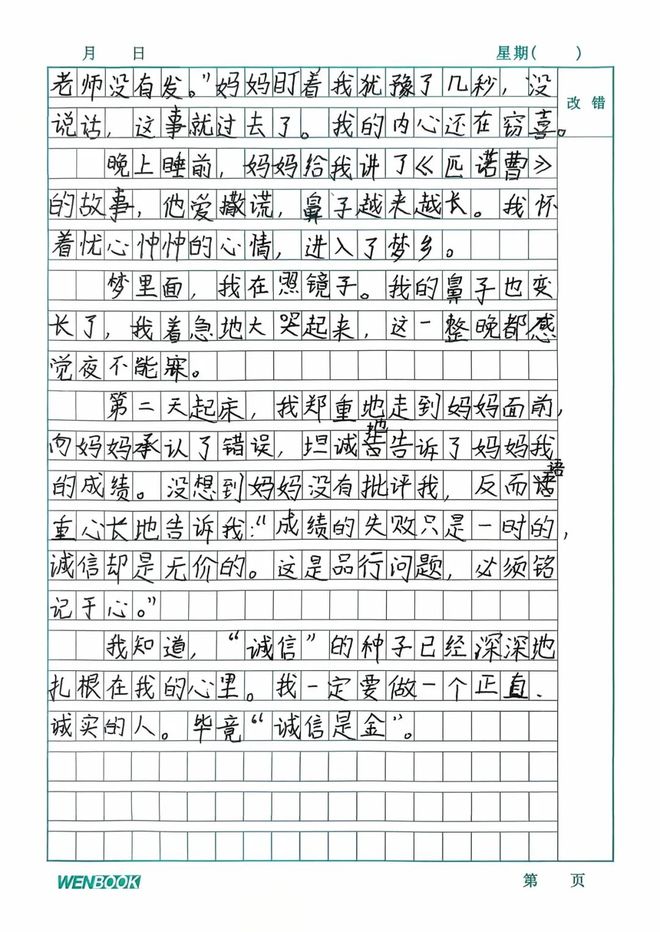 月 日 星期( )
改错
老师没有发。”妈妈盯着我犹豫了几秒，没
说话，这事就过去了。我的内心还在窃喜。
晚上睡前，妈妈给我讲了《匹诺曹》
的故事，他爱撒谎，鼻子越来越长。我怀
着忧心忡忡的心情，进入了梦乡。
梦里面，我在照镜子。我的鼻子也变
长了，我着急地大哭起来，这一整晚都感
觉夜不能寐。
第二天起床，我郑重地走到妈妈面前，
向妈妈承认了错误，坦诚地告诉了妈妈我
的成绩。没想到妈妈没有批评我，反而语
重心长地告诉我：“成绩的失败只是一时的，
诚信却是无价的。这是品行问题，必须铭
记于心。”
我知道，“诚信”的种子已经深深地
扎根在我的心里。我一定要做一个正直、
诚实的人。毕竟“诚信是金”。
WENBOOK
第 页